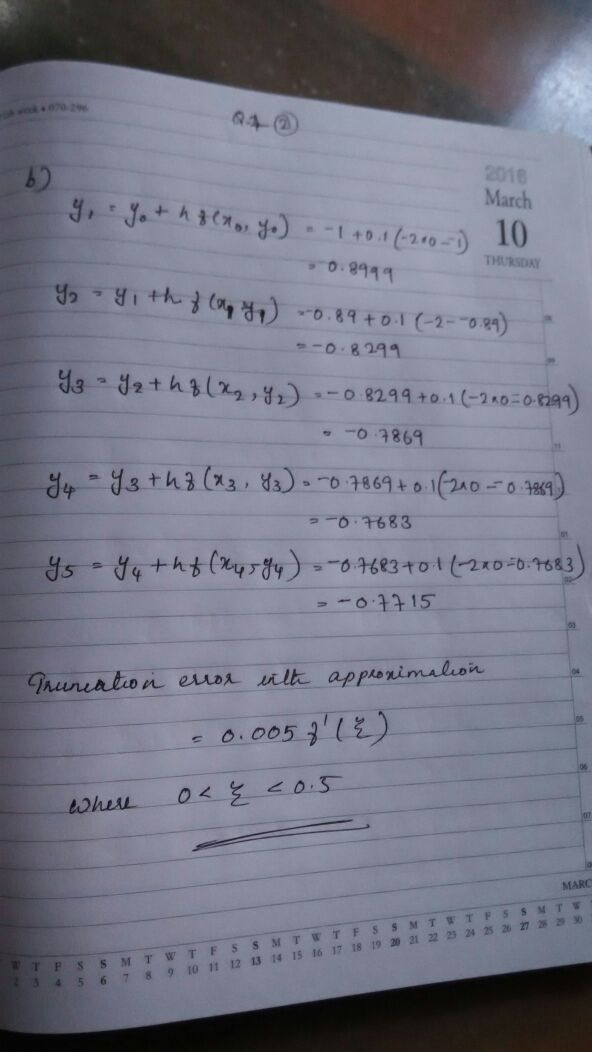 week • 070-296
Q.1 (2)
2016
March
10
THURSDAY
b)
y₁ = y₀ + h f(x₀, y₀) = -1 + 0.1(-2×0 - -1)
= -0.8999
y₂ = y₁ + h f(x₁ y₁) = -0.89 + 0.1(-2 - -0.89)
= -0.8299
y₃ = y₂ + h f(x₂, y₂) = -0.8299 + 0.1(-2×0 - -0.8299)
= -0.7869
y₄ = y₃ + h f(x₃, y₃) = -0.7869 + 0.1(-2×0 - -0.7869)
= -0.7683
y₅ = y₄ + h f(x₄, y₄) = -0.7683 + 0.1(-2×0 - -0.7683)
= -0.7715
Truncation error with approximation
= 0.005 f'(ξ)
where 0 < ξ < 0.5
08
09
11
01
02
03
04
05
06
07
MARC
W T F S S M T W T F S S M T W T F S S M T W T F S S M T W
2 3 4 5 6 7 8 9 10 11 12 13 14 15 16 17 18 19 20 21 22 23 24 25 26 27 28 29 30